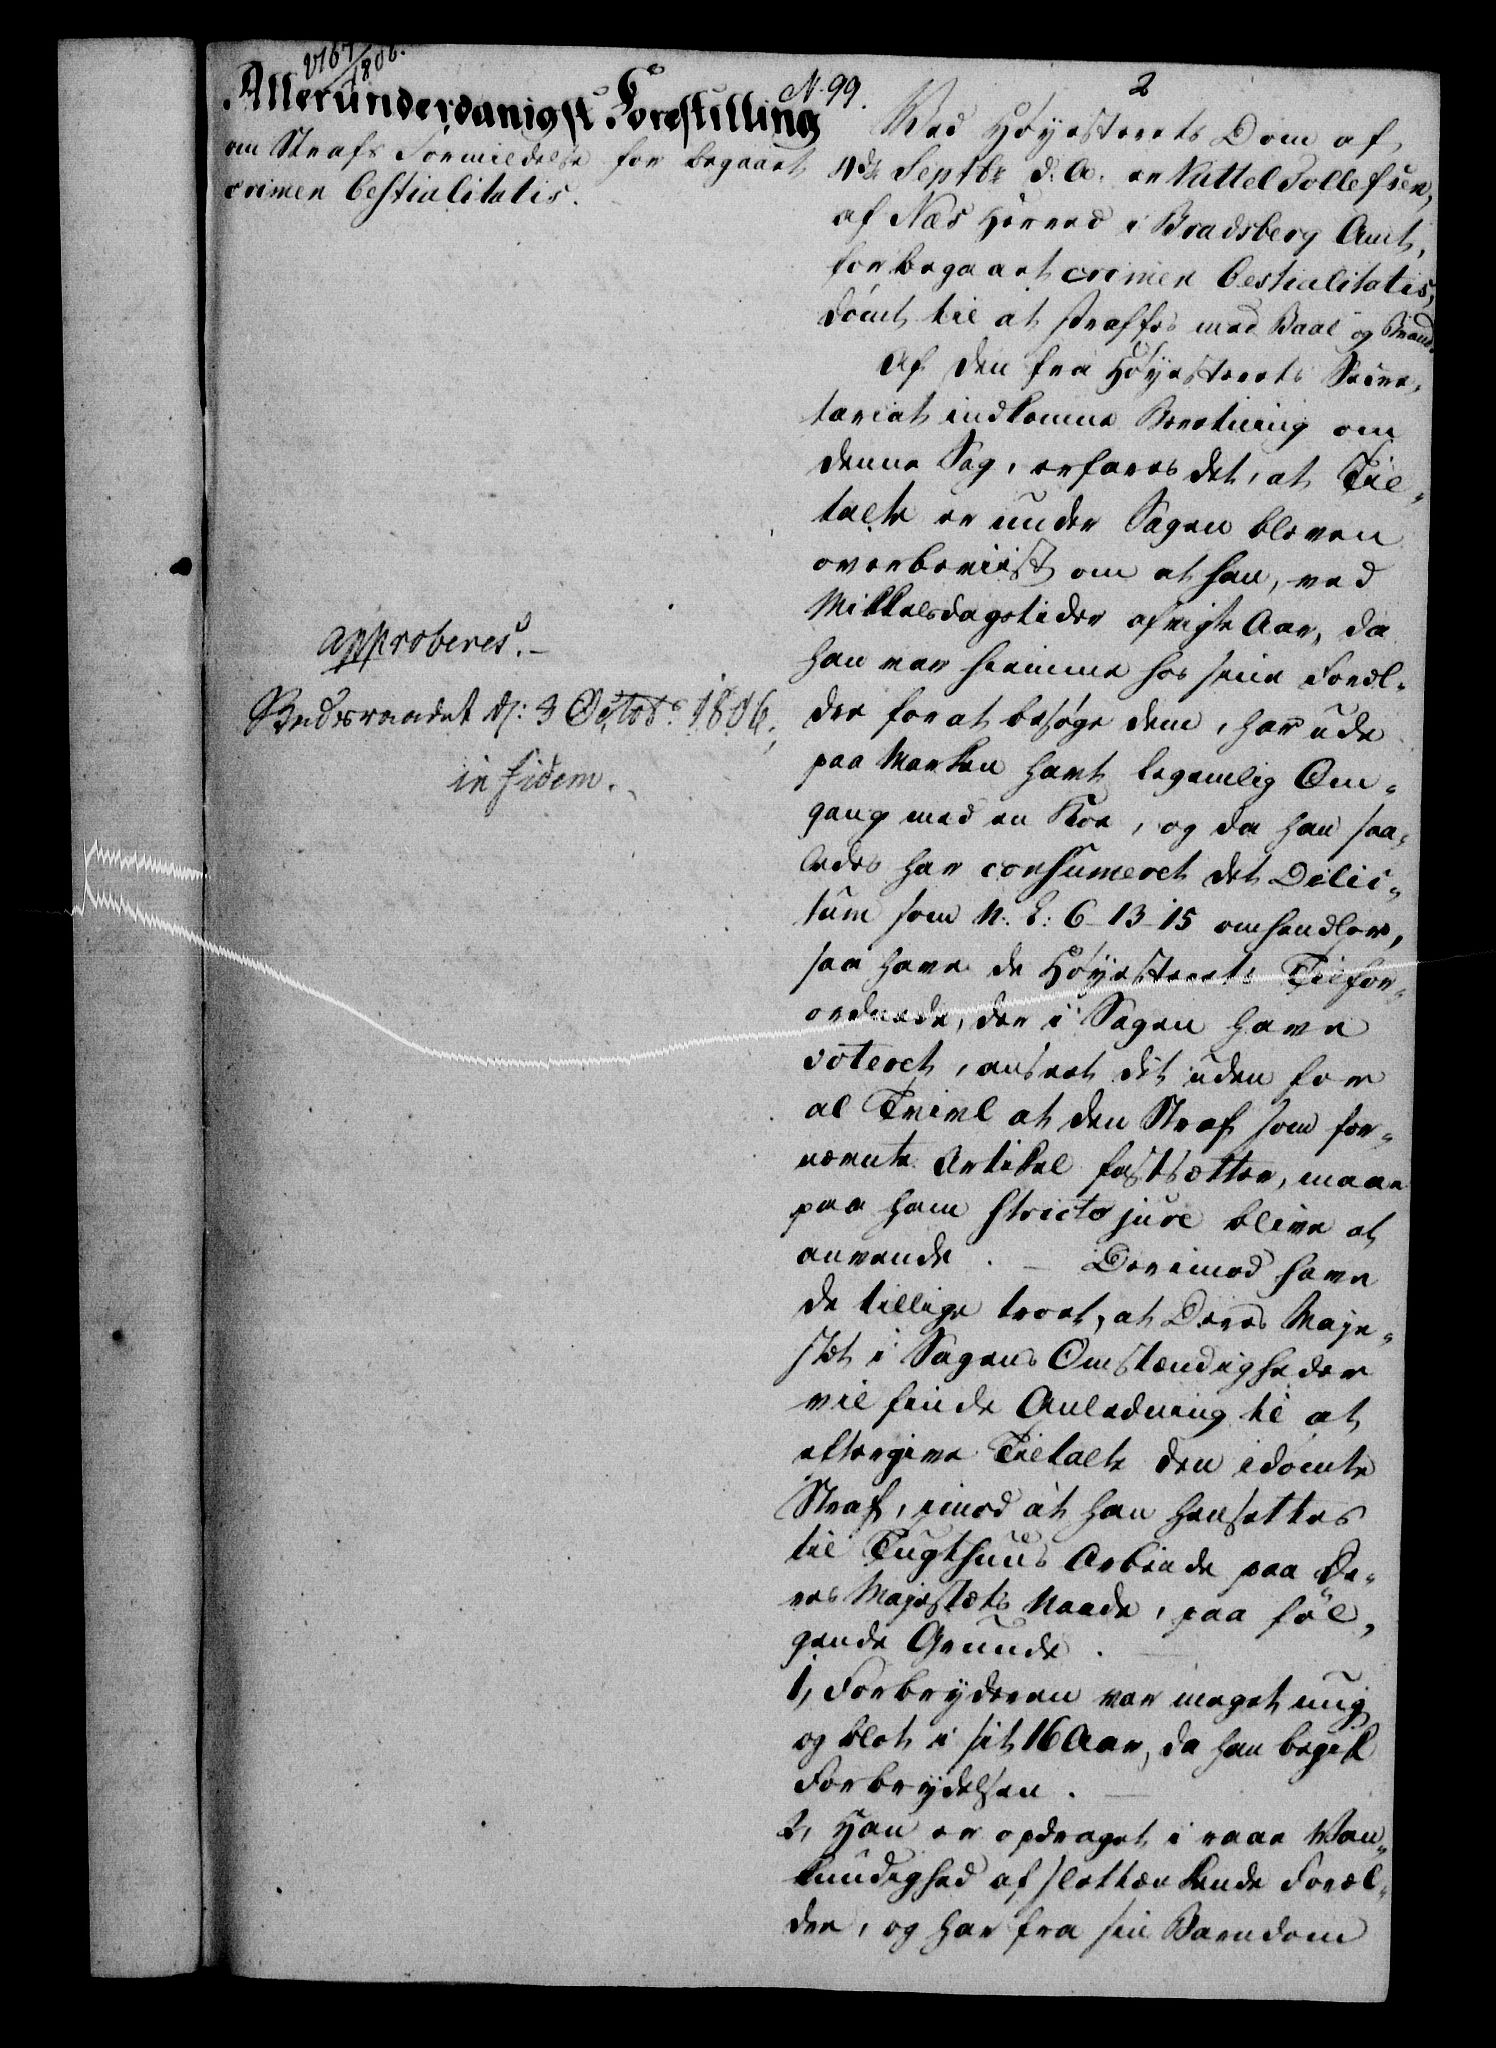 2167/1806.
N. 99.
2
Allerunderdanigst Forestilling
om Strafs Formildelse for begaaet
crimen bestialitatis.
approberes.-
Budsraadet d: 3 Octobr. 1806.
in fidem.
Ved Høyesterets Dom af
4de Septbr d. A. er Kittel Tollefsen,
af Næs Herred i Bradsberg Amt,
for begaaet crimen bestialitatis,
dømt til at straffes med Baal og Brand.
Af den fra Høyesterets Secre-
tariat indkomne Beretning om
denne Sag, erfares det, at Til-
talte er under Sagen bleven
overbeviist om at han, ved
Mikkelsdagstider afvigte Aar, da
han var hiemme hos sine Foræl-
dre for at besøge dem, har ude
paa Marken havt legemlig Om-
gang med en Koe, og da han saa-
ledes har consumeret det Delic-
tum som N. L. 6-13-15 omhandler,
saa have de Høyesterets Tilfor-
ordnede, der i Sagen have
voteret, anseet det uden for
al Tvivl at den Straf som for-
nævnte Artikel fastsætter, maae
paa ham stricto jure blive at
anvende. - Derimod have
de tillige troet, at Deres Maje-
stæt i Sagens Omstændigheder
vil finde Anledning til at
eftergive Tiltalte den idømte
Straf, imod at han hensættes
til Tugthuus Arbeide paa De-
res Majestæts Naade, paa føl-
gende Grunde.
1, Forbryderen var meget ung
og blot i sit 16 Aar, da han begik
Forbrydelsen.
2, Han er opdraget i raae Van-
kundighed af slettænkende Foræl-
dre, og har fra sin Barndom